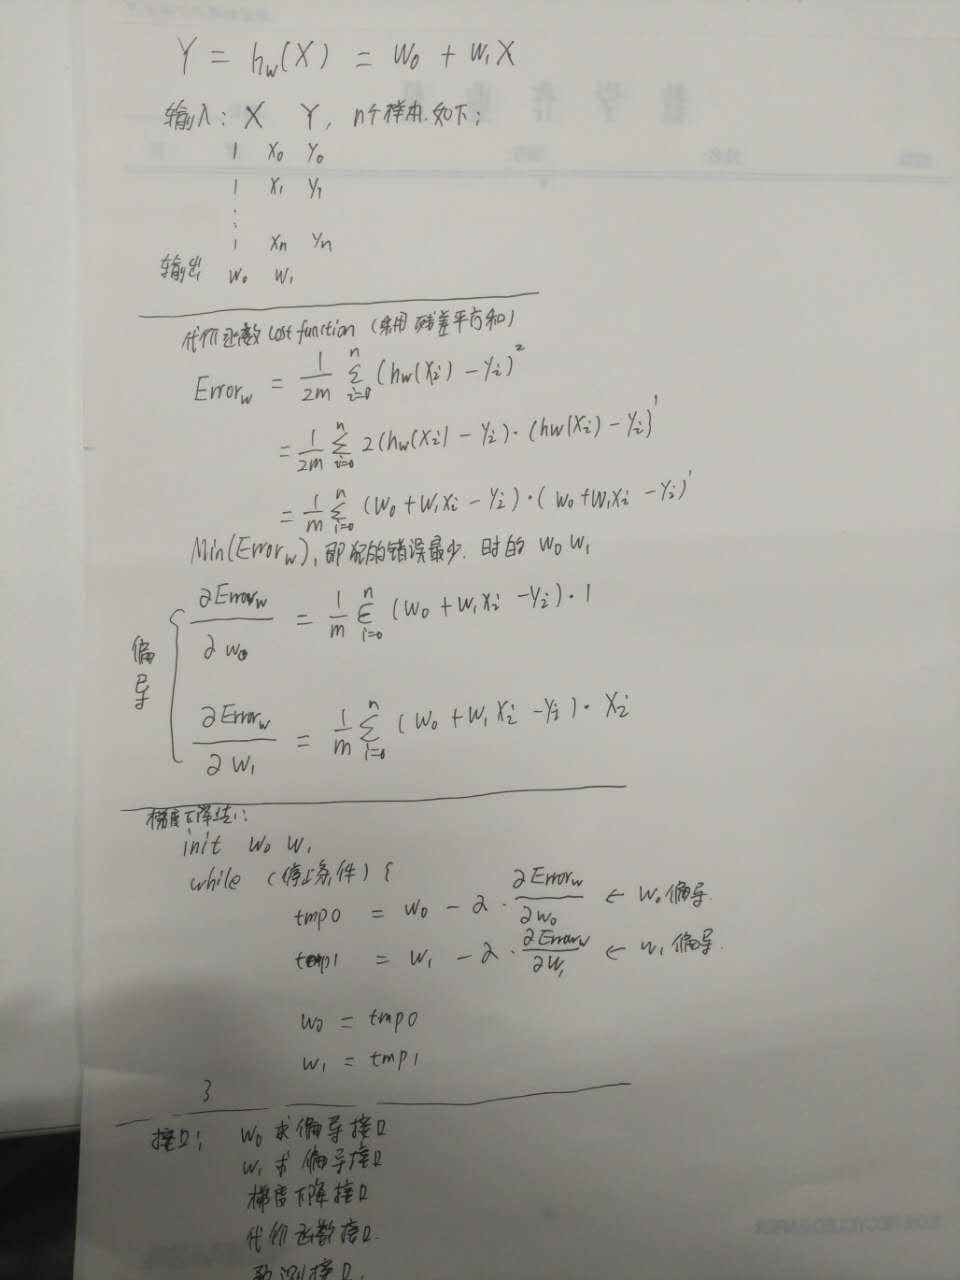 Y = h_w(X) = w₀ + w₁X
输入: X Y, n个样本.如下;
1 X₀ Y₀
1 X₁ Y₁
⋮
1 Xn Yn
输出 w₀ w₁
代价函数 cost function (采用 残差平方和)
Error_w = 1/2m Σ_{i=0}^{n} (h_w(Xi) − Yi)²
= 1/2m Σ_{i=0}^{n} 2(h_w(Xi) − Yi)·(hw(Xi) − Yi)'
= 1/m Σ_{i=0}^{n} (w₀ + w₁Xi − Yi)·(w₀ + w₁Xi − Yi)'
Min(Error_w), 即犯的错误最少.时的 w₀ w₁
偏导
∂Error_w/∂w₀ = 1/m Σ_{i=0}^{n} (w₀ + w₁Xi − Yi)·1
∂Error_w/∂w₁ = 1/m Σ_{i=0}^{n} (w₀ + w₁Xi − Yi)·Xi
梯度下降法:
init w₀ w₁
while (停止条件) {
tmp0 = w₀ − ∂·∂Error_w/∂w₀ ← w₀偏导.
tmp1 = w₁ − ∂·∂Error_w/∂w₁ ← w₁偏导.
w₀ = tmp0
w₁ = tmp1
}
接口: w₀求偏导接口
w₁求偏导接口
梯度下降接口
代价函数接口.
预测接口.